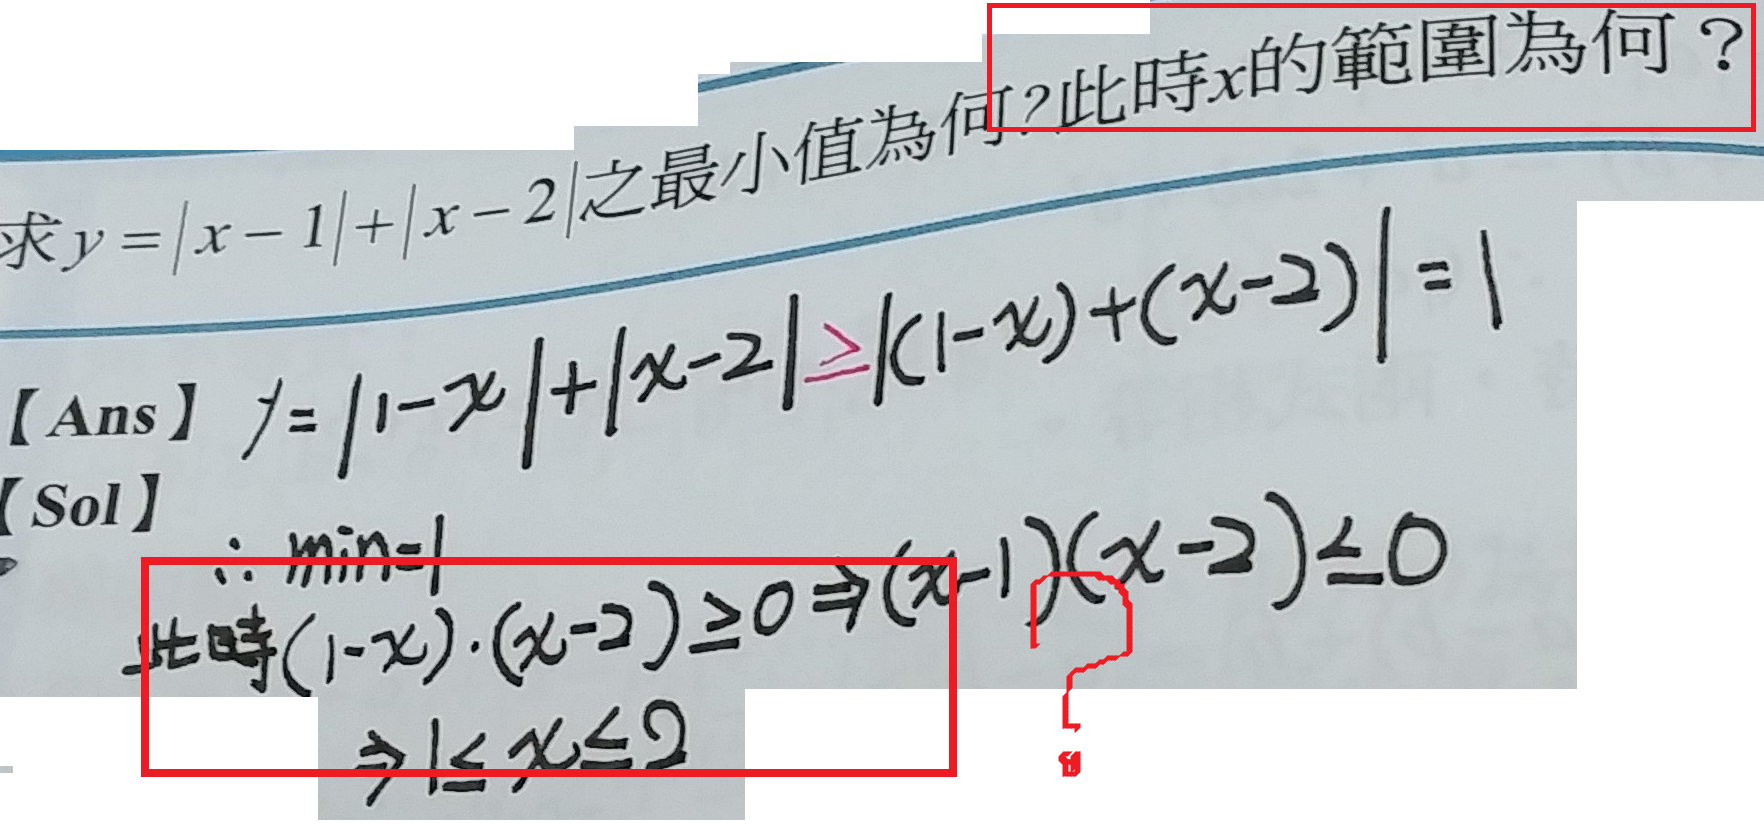 求 y = | x − 1| + | x − 2|之最小值為何?此時x的範圍為何？
【Ans】 y = |1-x| + |x-2| ≥ |(1-x)+(x-2)| = 1
【Sol】
∴ min=1
此時(1-x)·(x-2)≥0⇒(x-1)(x-2)≤0
⇒1≤x≤2
?